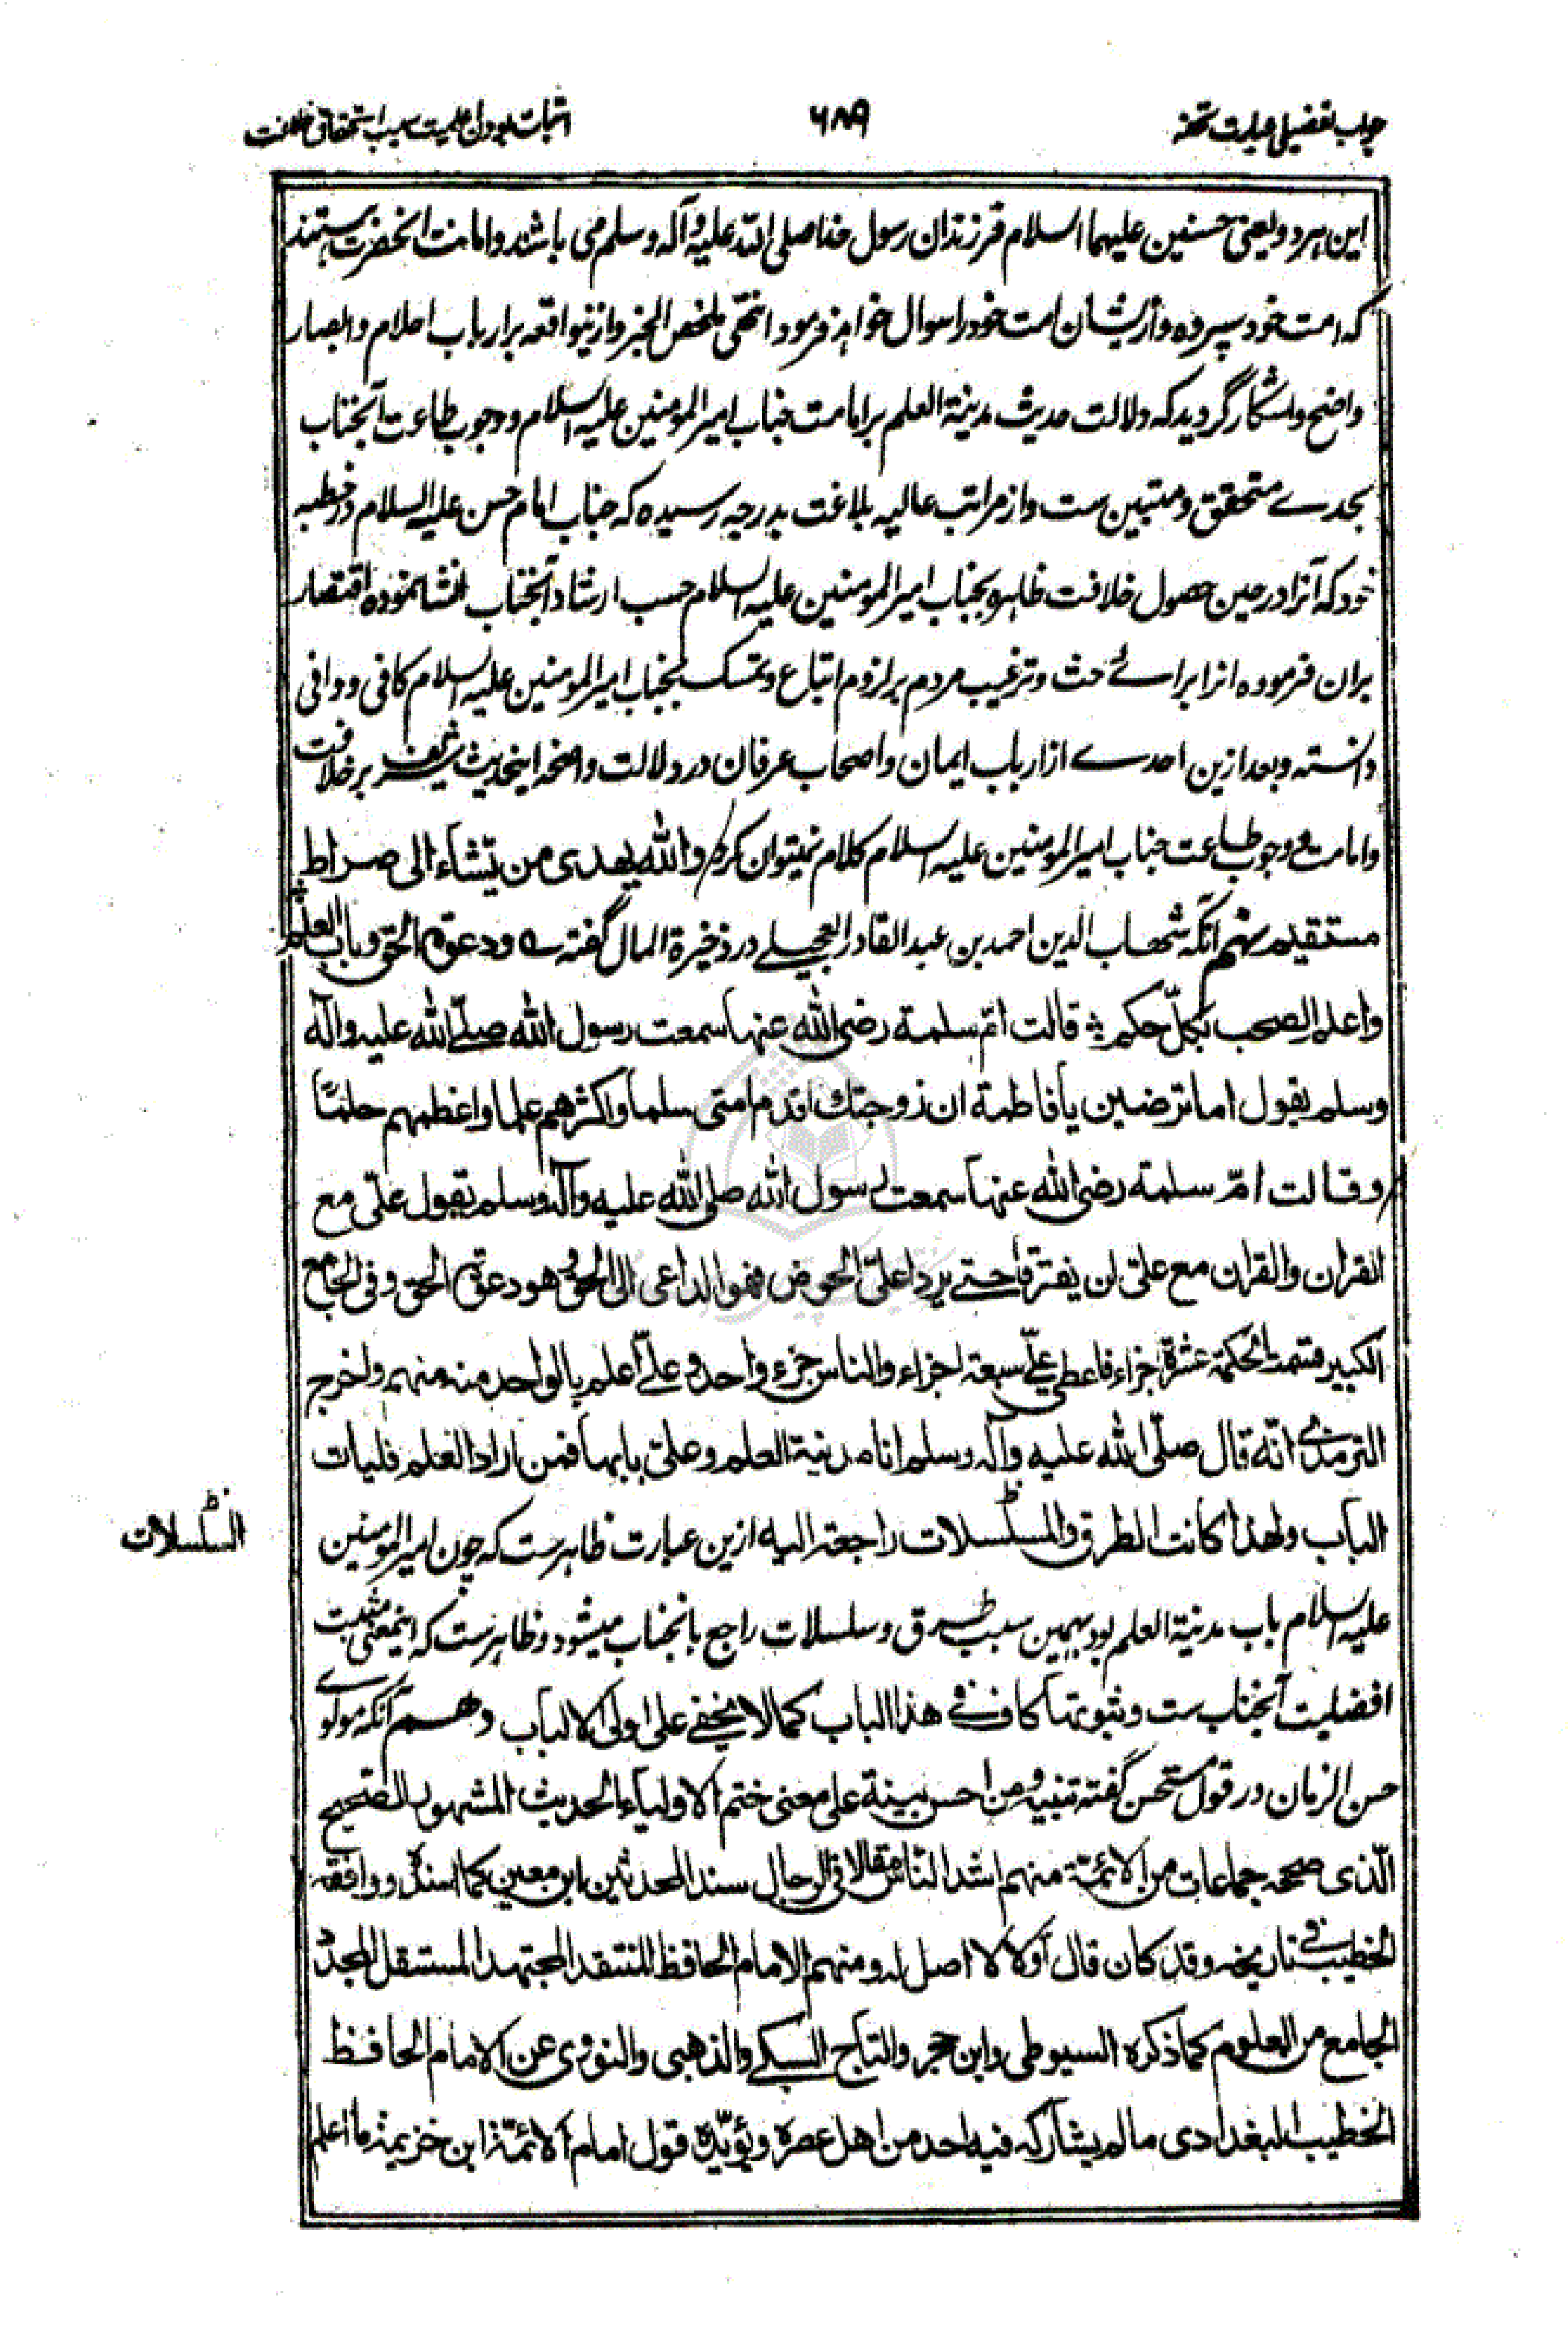 جواب تفضیلی عبارت تحفه
۶۸۹
اثبات بودن اعلمیت سبب استحقاق خلافت
این هر دو یعنی حسنین علیهما السلام فرزندان رسول خدا صلی الله علیه و آله وسلم می باشند و امانت آنحضرت هستند
که امت خود سپرده و از ایشان امت خود را سوال خواهد فرمود انتهی ملخص الخبر و ازینواقعه بر ارباب احلام و ابصار
واضح و آشکار گردید که دلالت حدیث مدینة العلم بر امامت جناب امیر المومنین علیه السلام و وجوب طاعت آنجناب
بحدے متحقق و متبین ست و از مراتب عالیه بلاغت بدرجه رسیده که جناب امام حسن علیه السلام در خطبه
خود که آنرا در حین حصول خلافت ظاهره بجناب امیر المومنین علیه السلام حسب ارشاد آنجناب انشا نموده اقتصار
بران فرموده انرا براے حث و ترغیب مردم بر لزوم اتباع و تمسک بجناب امیر المومنین علیه السلام کافی و وافی
دانسته و بعد ازین احدے از ارباب ایمان و اصحاب عرفان در دلالت واضحه اینحدیث شریف بر خلافت
و امامت و وجوب طاعت جناب امیر المومنین علیه السلام کلام نمیتوان کرد والله یهدی من یشاء الی صراط
مستقیم نهم آنکه شهاب الدین احمد بن عبد القادر العجیلے در ذخیرة المال گفته ه ودعوة الحق وباب العلم
واعلم الصحب بکلّ حکم قالت امّ سلمة رضی الله عنها سمعت رسول الله صلّے الله علیه وآله
وسلم یقول اما ترضین یا فاطمة ان زوجتک اقدم امتی سلما واکثرهم علما واعظمهم حلمًا
وقالت امّ سلمة رضی الله عنها سمعت رسول الله صلی الله علیه وآله وسلم یقول علیّ مع
القران والقران مع علی لن یفترقا حتے یردا علیّ الحوض فهو الداعی الی الحق وهو دعوة الحق وفی الجامع
الکبیر قسمت الحکمة عشرة اجزاء فاعطی علیّ تسعة اجزاء والناس جزء واحد وعلیّ اعلم بالواحد منه منهم واخرج
الترمذے انّه قال صلّی الله علیه وآله وسلم انا مدینة العلم وعلیّ بابها فمن اراد العلم فلیات
الباب ولهذا کانت الطرق والسلسلات راجعة الیه ازین عبارت ظاهرست که چون امیر المومنین
السلسلات
علیه السلام باب مدینة العلم بود بهمین سبب طرق و سلسلات راجع بانجناب میشود و ظاهرست که اینمعنی مثبت
افضلیت آنجناب ست وثبوتها کاف فے هذا الباب کما لا یخفے علی اولی الالباب دهم آنکه مولوے
حسن الزمان در قول مستحسن گفته تنبیه ومن احسن بینة علی معنی ختم الاولیاء الحدیث المشهور الصحیح
الّذی صححه جماعات من الائمّة منهم اشد النّاس مقالا فی الرجال سند المحدثین ابن معین کما اسنده ووافقه
الخطیب فے تاریخه وقد کان قال اوّلا لا اصل له ومنهم الامام الحافظ المنتقد المجتهد المستقل المجدد
الجامع من العلوم کما ذکره السیوطی وابن حجر والتاج السبکے والذهبی والنووی عن الامام الحافظ
الخطیب البغدادی ما لم یشارکه فیه احد من اهل عصره ویؤیّده قول امام الائمّة ابن خزیمة ما اعلم